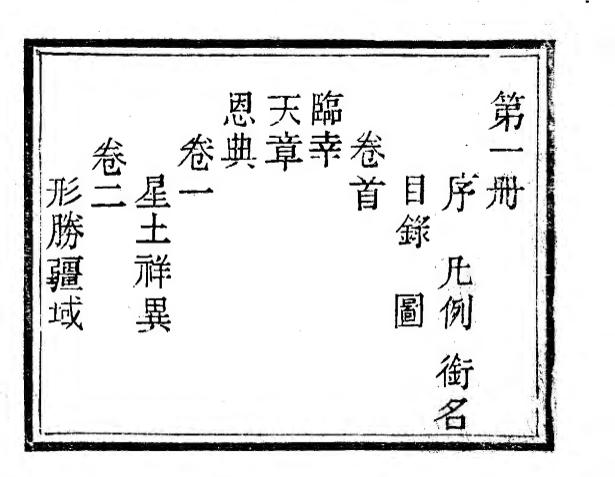 第一冊
序 凡例 銜名
目錄 圖
卷首
臨幸
天章
恩典
卷一
星土祥異
卷二
形勝疆域